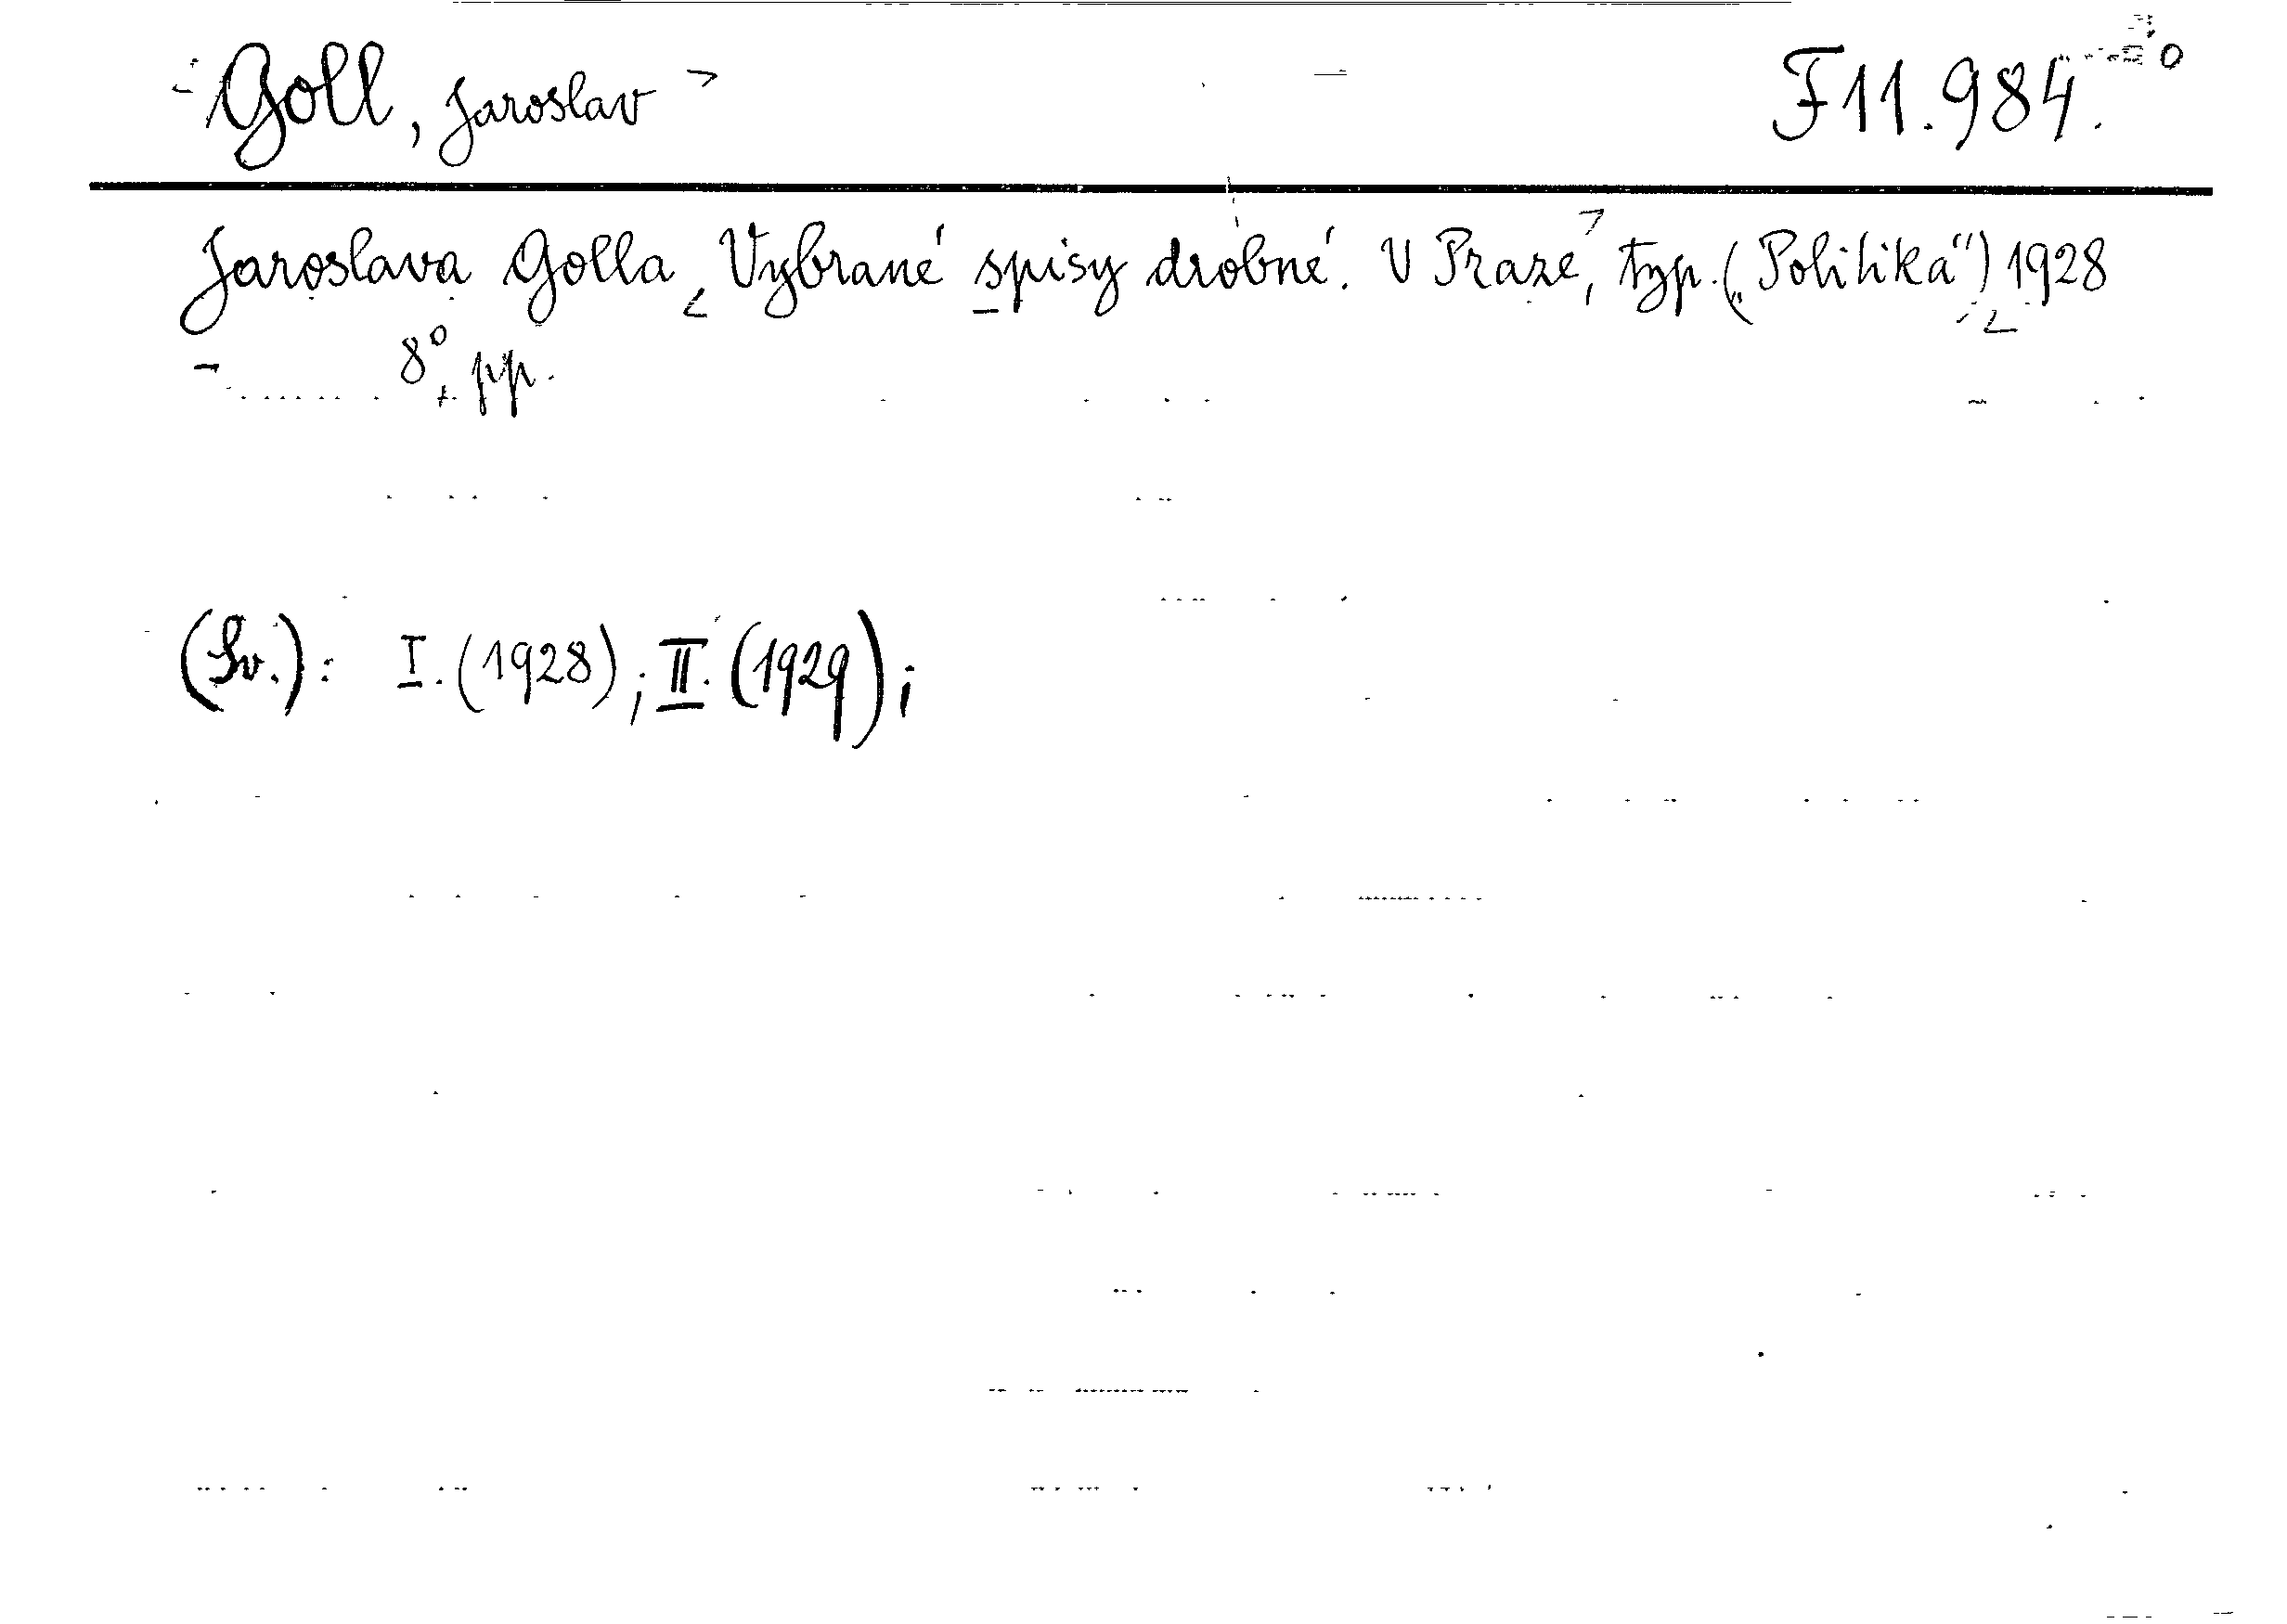 Goll, Jaroslav F11.984.
Jaroslava Golla Vybrané spisy drobné. V Praze, typ. („Politika“) 1928
- 8° pp.
(Sv.): I. (1928); II. (1929);